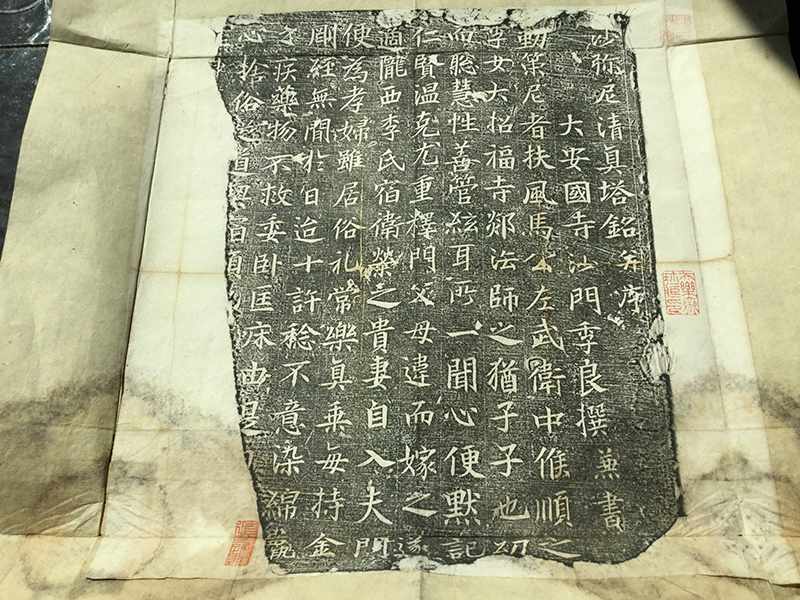 沙弥尼清真塔銘并序
大安國寺沙門季良撰兼書
勤策尼者扶風馬公左武衛中候順之
季女大招福寺郯法師之猶子子也幼
而聡慧性善管絃耳所一聞心便默記
仁賢温克尤重釋門父母違而嫁之遂
適隴西李氏宿衛榮之貴妻自入夫門
便為孝婦雖居俗礼常樂真乘每持金
剛經無間於日迨十許稔不意染綿
之疾藥物不救委卧匡床由是
心捨俗